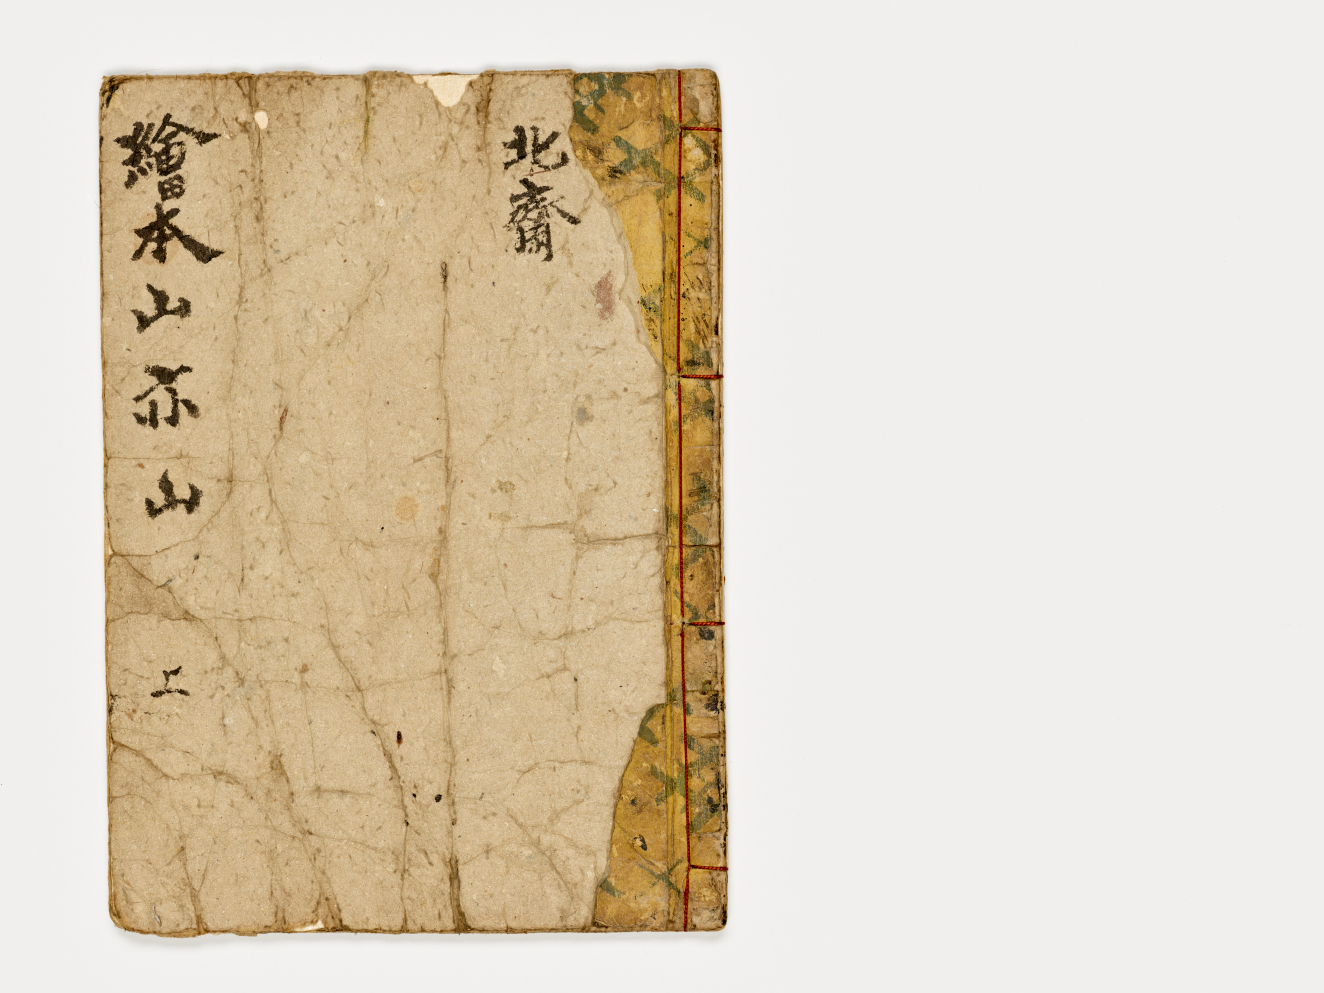 北齋
繪本山亦山 上